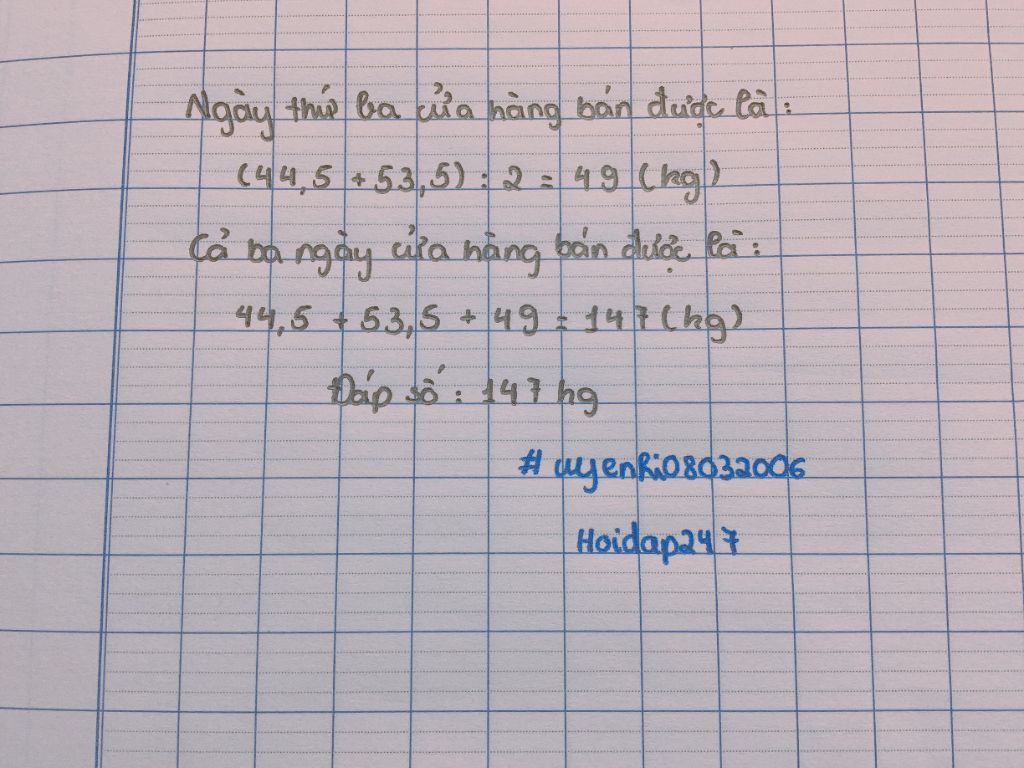 Ngày thứ ba cửa hàng bán được là:
(44,5 + 53,5) : 2 = 49 (kg)
Cả ba ngày cửa hàng bán được là:
44,5 + 53,5 + 49 = 147 (kg)
Đáp số: 147 kg
# uyenRi08032006
Hoidap247